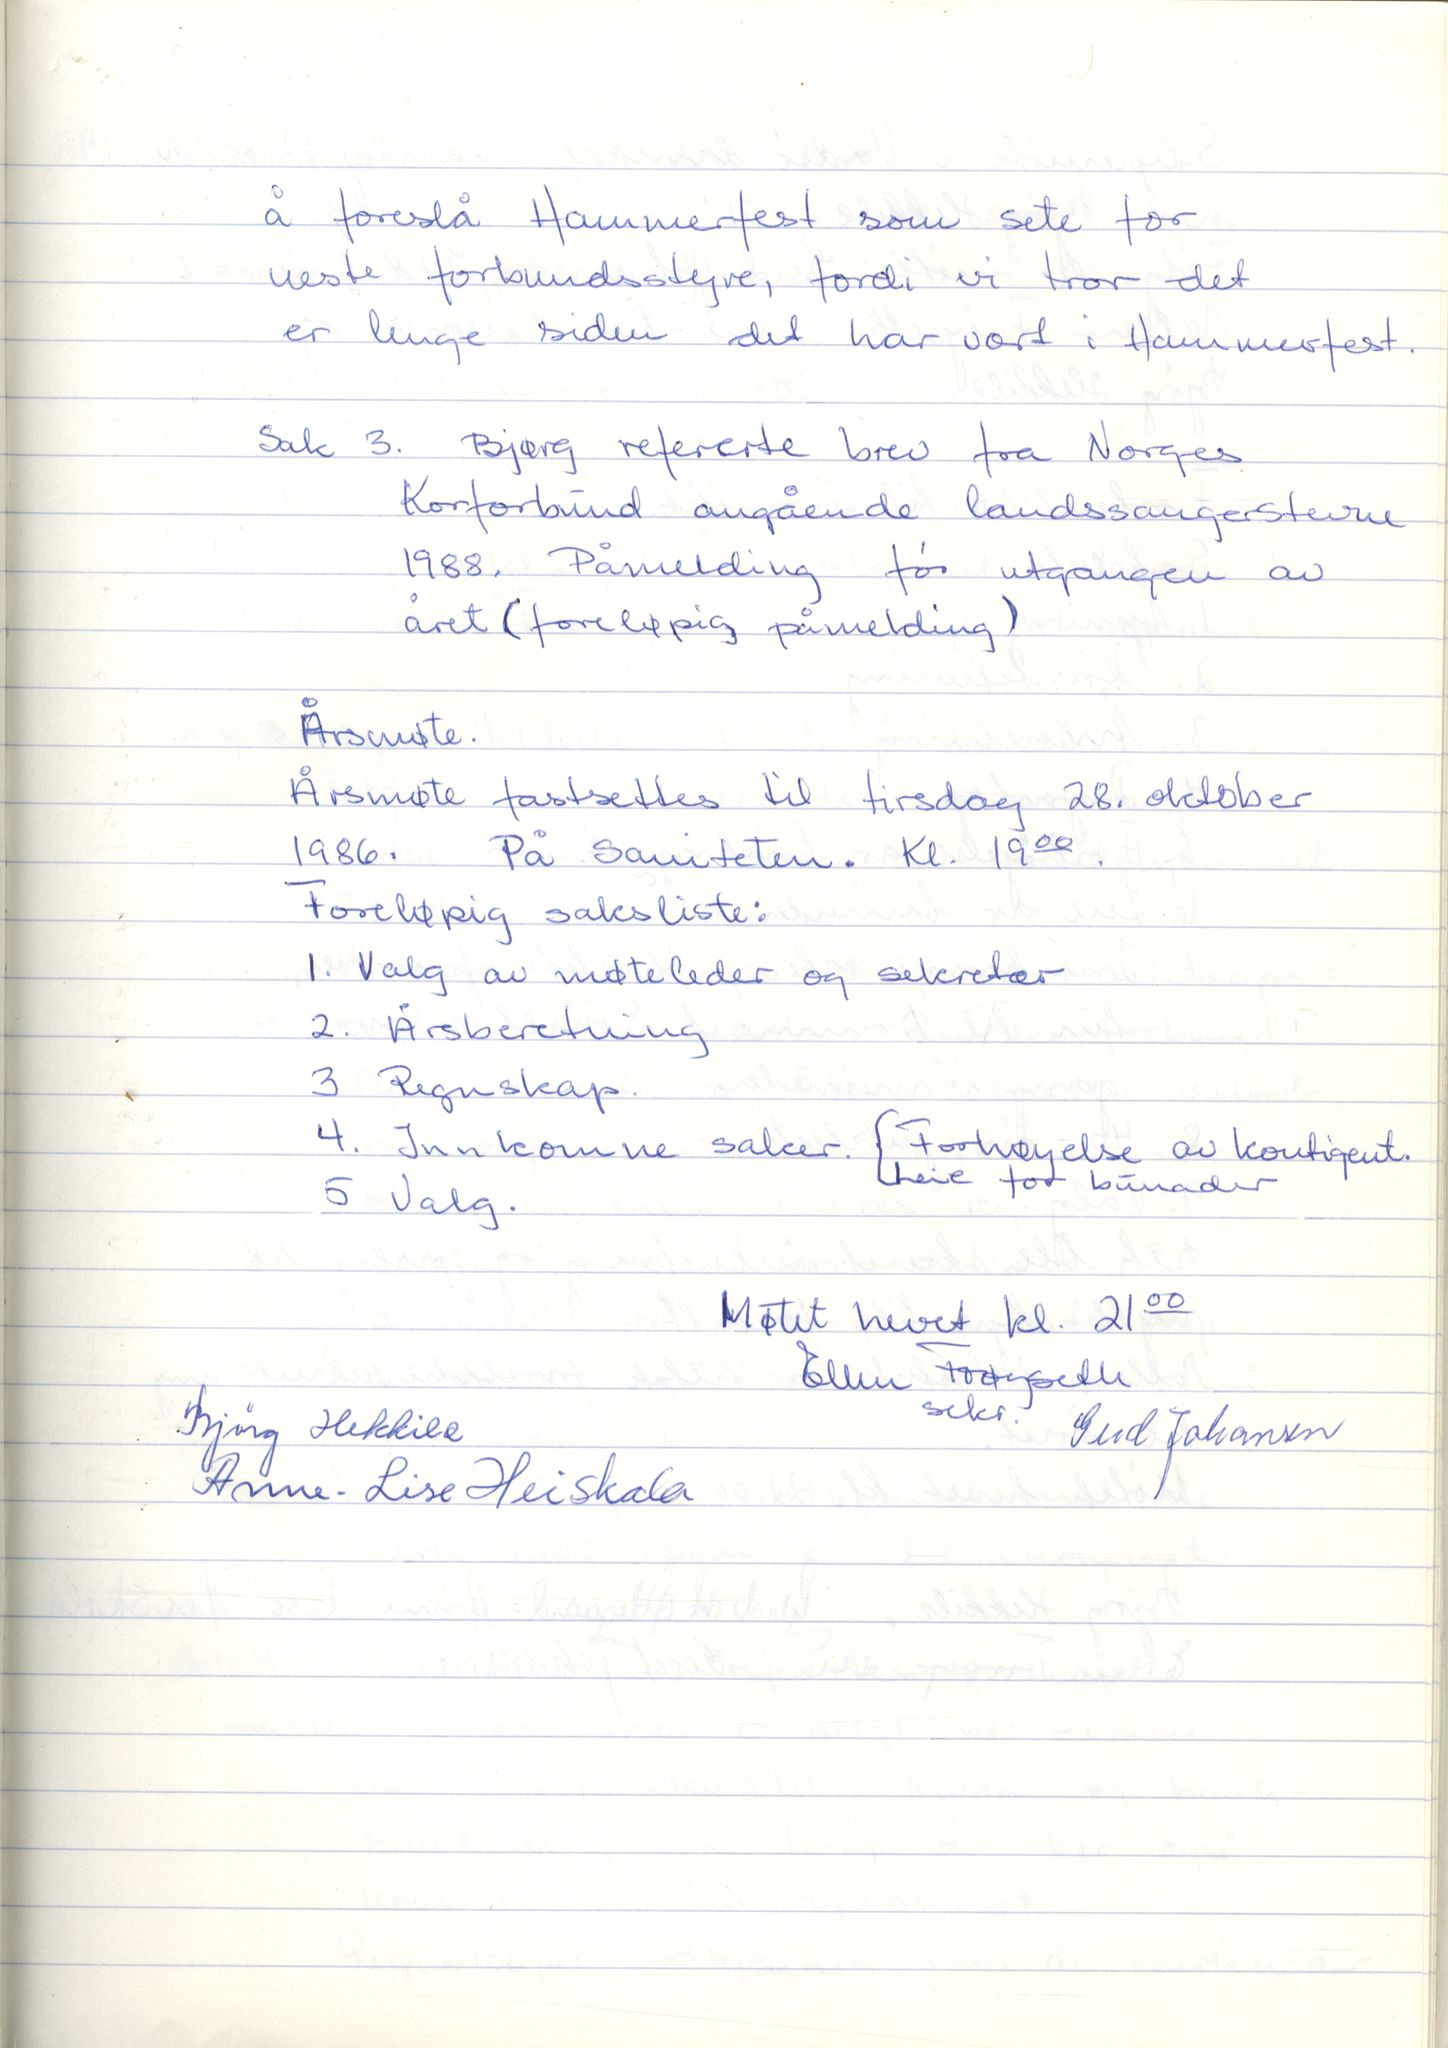 å foreslå Hammerfest som sete for
neste forbundsstyre, fordi vi tror det
er lenge siden det har vært i Hammerfest.
Sak 3. Bjørg refererte brev fra Norges
Korforbund angående landssangerstevne
1988. Påmelding før utgangen av
året (foreløpig påmelding)
Årsmøte.
Årsmøte fastsettes til tirsdag 28. oktober
1986. På Saniteten. Kl. 19 00.
Foreløpig saksliste:
1. Valg av møteleder og sekretær
2. Årsberetning
3 Regnskap.
4. Innkomne saker. { Forhøyelse av kontigent.
Leie for bunader
5 Valg.
Møtet hevet kl. 21 00
Ellen
sekr.
Bjørg Hekkila
Gud Johansen
Anne-Lise Heiskala